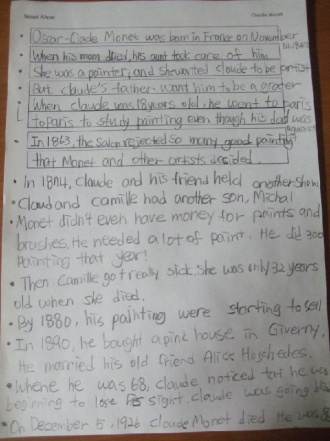 Claude Monet
Oscar-Clade Monet was born in France on November
14, 1840
When his mom died, his aunt took care of him
She was a painter, and she wanted claude to be artist
But claude's father want him to be a grater
When claude was 18 years old, he went to paris
to Paris to study painting even though his dad was
against
In 1863, the salon rejected so many good painting
that Monet and other artists decided
In 1874, Claude and his friend held another show
Claud and camille had another son, Michal
Monet didn't even have money for paints and
brushes. He needed a lot of paint. He did 300
Painting that year!
Then Camille got really sick. She was only 32 years
old when she died.
By 1880, his painting were starting to sell
In 1890, he bought a pink house in Giverny.
He married his old friend Alice Hoshedes.
Whene he was 68, claude noticed tat he was
beginning to lose his sight. claude was going
On December 5, 1926 claude Monet died. He was